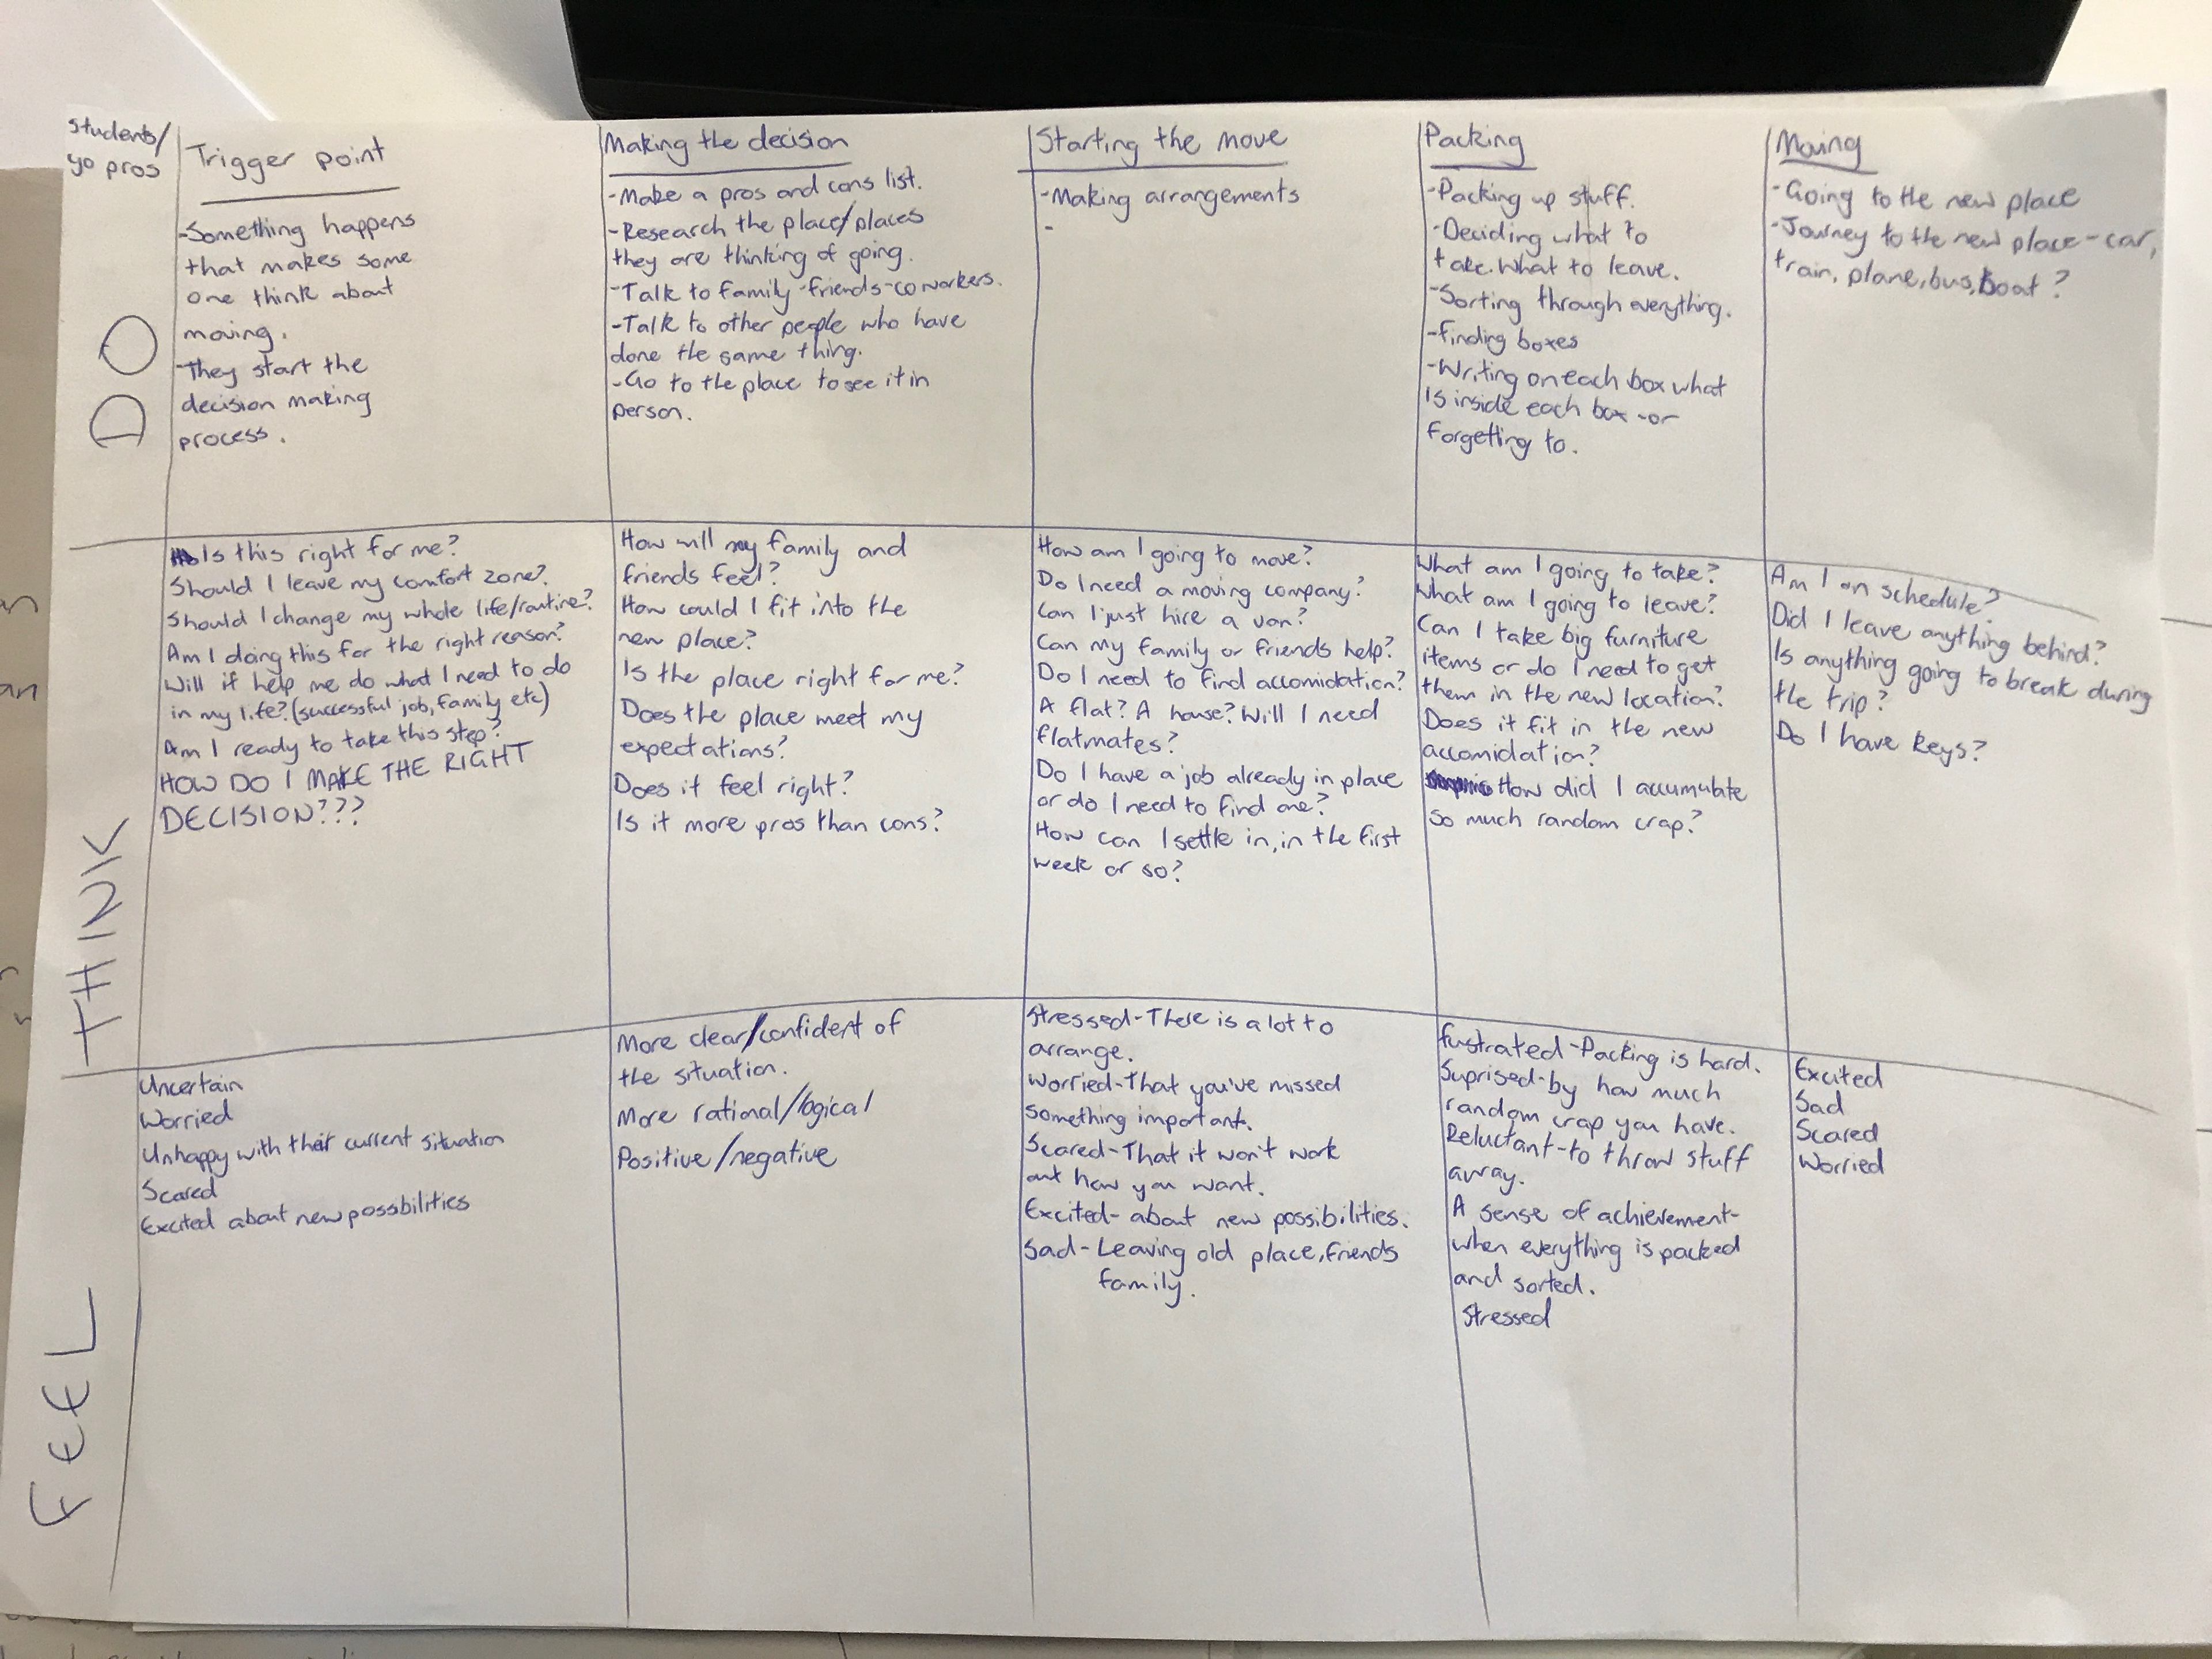 Students/
yo pros
Trigger point
-Something happens
that makes some
one think about
moving.
-They start the
decision making
process.
Making the decision
-Make a pros and cons list.
-Research the place/places
they are thinking of going.
-Talk to family-friends-coworkers.
-Talk to other people who have
done the same thing.
-Go to the place to see it in
person.
Starting the move
-Making arrangements
-
Packing
-Packing up stuff.
-Deciding what to
take. What to leave.
-Sorting through everything.
-finding boxes
-Writing on each box what
is inside each box -or
forgetting to.
Moving
-Going to the new place
-Journey to the new place - car,
train, plane, bus, boat?
DO
Is this right for me?
Should I leave my comfort zone?
Should I change my whole life/routine?
Am I doing this for the right reason?
Will it help me do what I need to do
in my life? (successful job, family etc)
Am I ready to take this step?
HOW DO I MAKE THE RIGHT
DECISION???
How will my family and
friends feel?
How could I fit into the
new place?
Is the place right for me?
Does the place meet my
expectations?
Does it feel right?
Is it more pros than cons?
How am I going to move?
Do I need a moving company?
Can I just hire a van?
Can my family or friends help?
Do I need to find accomidation?
A flat? A house? Will I need
flatmates?
Do I have a job already in place
or do I need to find one?
How can I settle in, in the first
week or so?
What am I going to take?
What am I going to leave?
Can I take big furniture
items or do I need to get
them in the new location?
Does it fit in the new
accomidation?
How did I accumulate
so much random crap?
Am I on schedule?
Did I leave anything behind?
Is anything going to break during
the trip?
Do I have keys?
THINK
Uncertain
Worried
Unhappy with their current situation
Scared
Excited about new possbilities
More clear/confident of
the situation.
More rational/logical
Positive/negative
Stressed-There is a lot to
arrange.
Worried-That you've missed
something important.
Scared-That it won't work
out how you want.
Excited- about new possibilities.
Sad- Leaving old place, friends
family.
fustrated-Packing is hard.
Suprised-by how much
random crap you have.
Reluctant-to throw stuff
away.
A sense of achievement-
when everything is packed
and sorted.
Stressed
Excited
Sad
Scared
Worried
FEEL